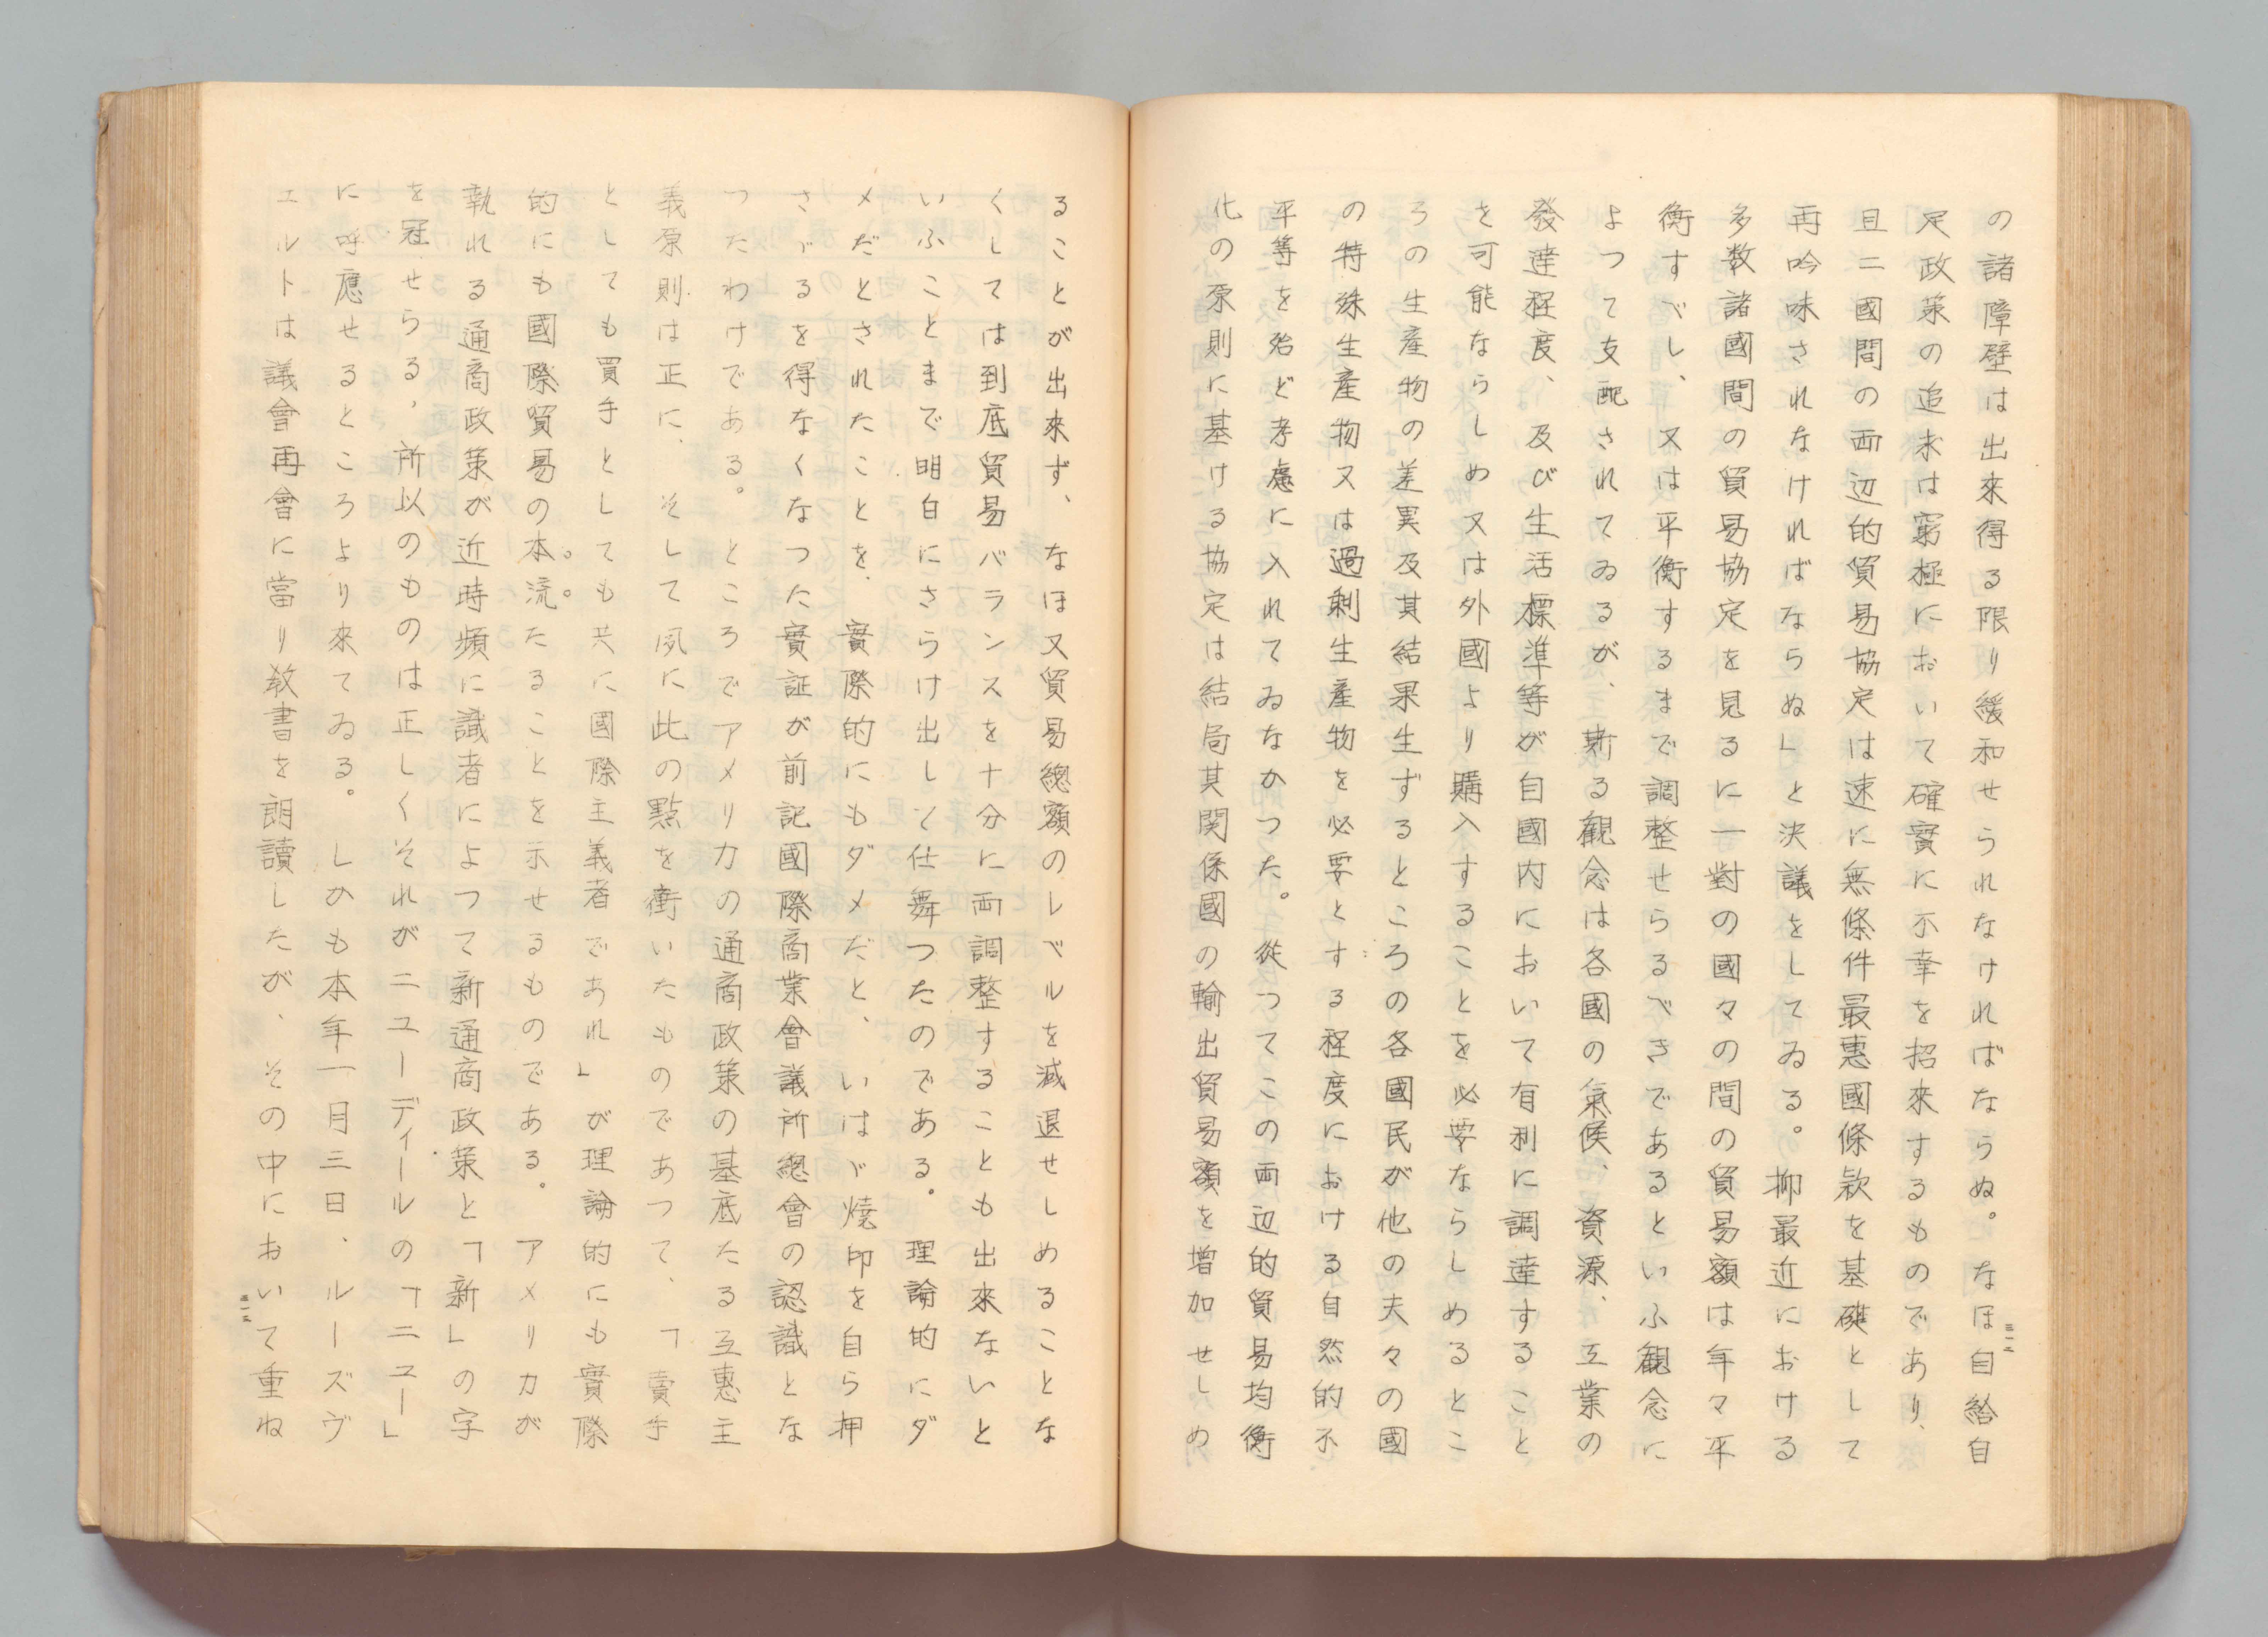 の諸障壁は出來得る限り緩和せられなければならぬ。なほ自給自
足政策の追求は窮極において確實に不幸を招来するものであり、
且二國間の両辺的貿易協定は速に無條件最惠國條款を基礎として
再吟味されなければならぬ」と決議をしてゐる。抑最近における
多数諸國間の貿易協定を見るに一對の國々の間の貿易額は年々平
衡すべし、又は平衡するまで調整せらるべきであるといふ観念に
よつて支配されてゐるが、斯る観念は各國の氣候、資源、工業の
發達程度、及び生活標準等が自國内において有利に調達すること
を可能ならしめ又は外國より購入することを必要ならしめるとこ
ろの生産物の差異及其結果生ずるところの各國民が他の夫々の國
の特殊生産物又は過剰生産物を必要とする程度における自然的不
平等を殆ど考慮に入れてゐなかつた。從つてこの両辺的貿易均衡
化の原則に基ける協定は結局其関係國の輸出貿易額を増加せしめ
三一二
ることが出來ず、なほ又貿易總額のレベルを減退せしめることな
くしては到底貿易バランスを十分に両調整することも出來ないと
いふことまで明白にさらけ出して仕舞つたのである。理論的にダ
メだとされたことを、實際的にもダメだと、いはゞ燒印を自ら押
さゞるを得なくなつた實証が前記國際商業會議所總會の認識とな
つたわけである。ところでアメリカの通商政策の基底たる互惠主
義原則は正に、そして夙に此の點を衝いたものであつて、「賣手
としても買手としても共に國際主義者であれ」が理論的にも實際
的にも國際貿易の本流たることを示せるものである。アメリカが
執れる通商政策が近時頻に識者によつて新通商政策と「新」の字
を冠せらる、所以のものは正しくそれがニューディールの「ニュー」
に呼應せるところより來てゐる。しかも本年一月三日、ルーズヴ
ェルトは議會再會に當り敎書を朗讀したが、その中において重ね
三一三